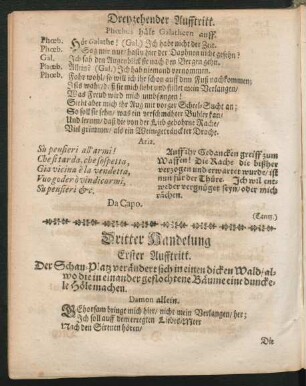 Dreyzehender Aufftritt.
Phœbus hält Galatheen auff.
Phœb. Hör Galathe! (Gal.) Ich habe nicht der Zeit.
Phœb. Sag mir nur/ hastu hier der Daphnen nicht gesehn?
Gal. Ich sah den Augenblick sie nach den Bergen gehn.
Phœb. Alleine? (Gal.) Ich hab niemand vernommen.
Phœb. Habe wohl/ so will ich ihr schon auff dem Fuß nachkommen;
Ists wahr/ daß sie mich liebt und stillet mein Verlangen/
Was Freud wird mich umbfangen!
Sieht aber mich ihr Aug mit voriger Scheele Sucht an;
So soll sie sehn/ was ein verschmähter Buhler kan/
Und lernen/ daß die von der Lieb gebohrne Rache/
Viel grimmer/ als ein Drache.
Aria.
Su pensieri all'armi!
Che si tarda, che sospetta,
Gia vicina è la vendetta,
Vuo goder ò vendicarmi,
Su pensieri &c.
Da Capo.
Auff ihr Gedancken greiff zum
Waffen! Die Rache die bißher
verzogen und erwartet wurde/ ist
nun für der Thüre. Ich wil ent-
weder vergnüget seyn/ oder mich
rächen.
(Tantz.)
Dritter Handelung
Erster Aufftritt.
Der Schau-Platz verändere sich in einen dicken Wald/ al-
wo die in einander geflochtene Bäume eine duncke-
le Höle machen.
Damon allein.
Gehorsam bringt mich hier/ nicht mein Verlangen/ her;
Ich soll auff dem erregten Liebes-Meer
Nach den Sirenen hören/
Die